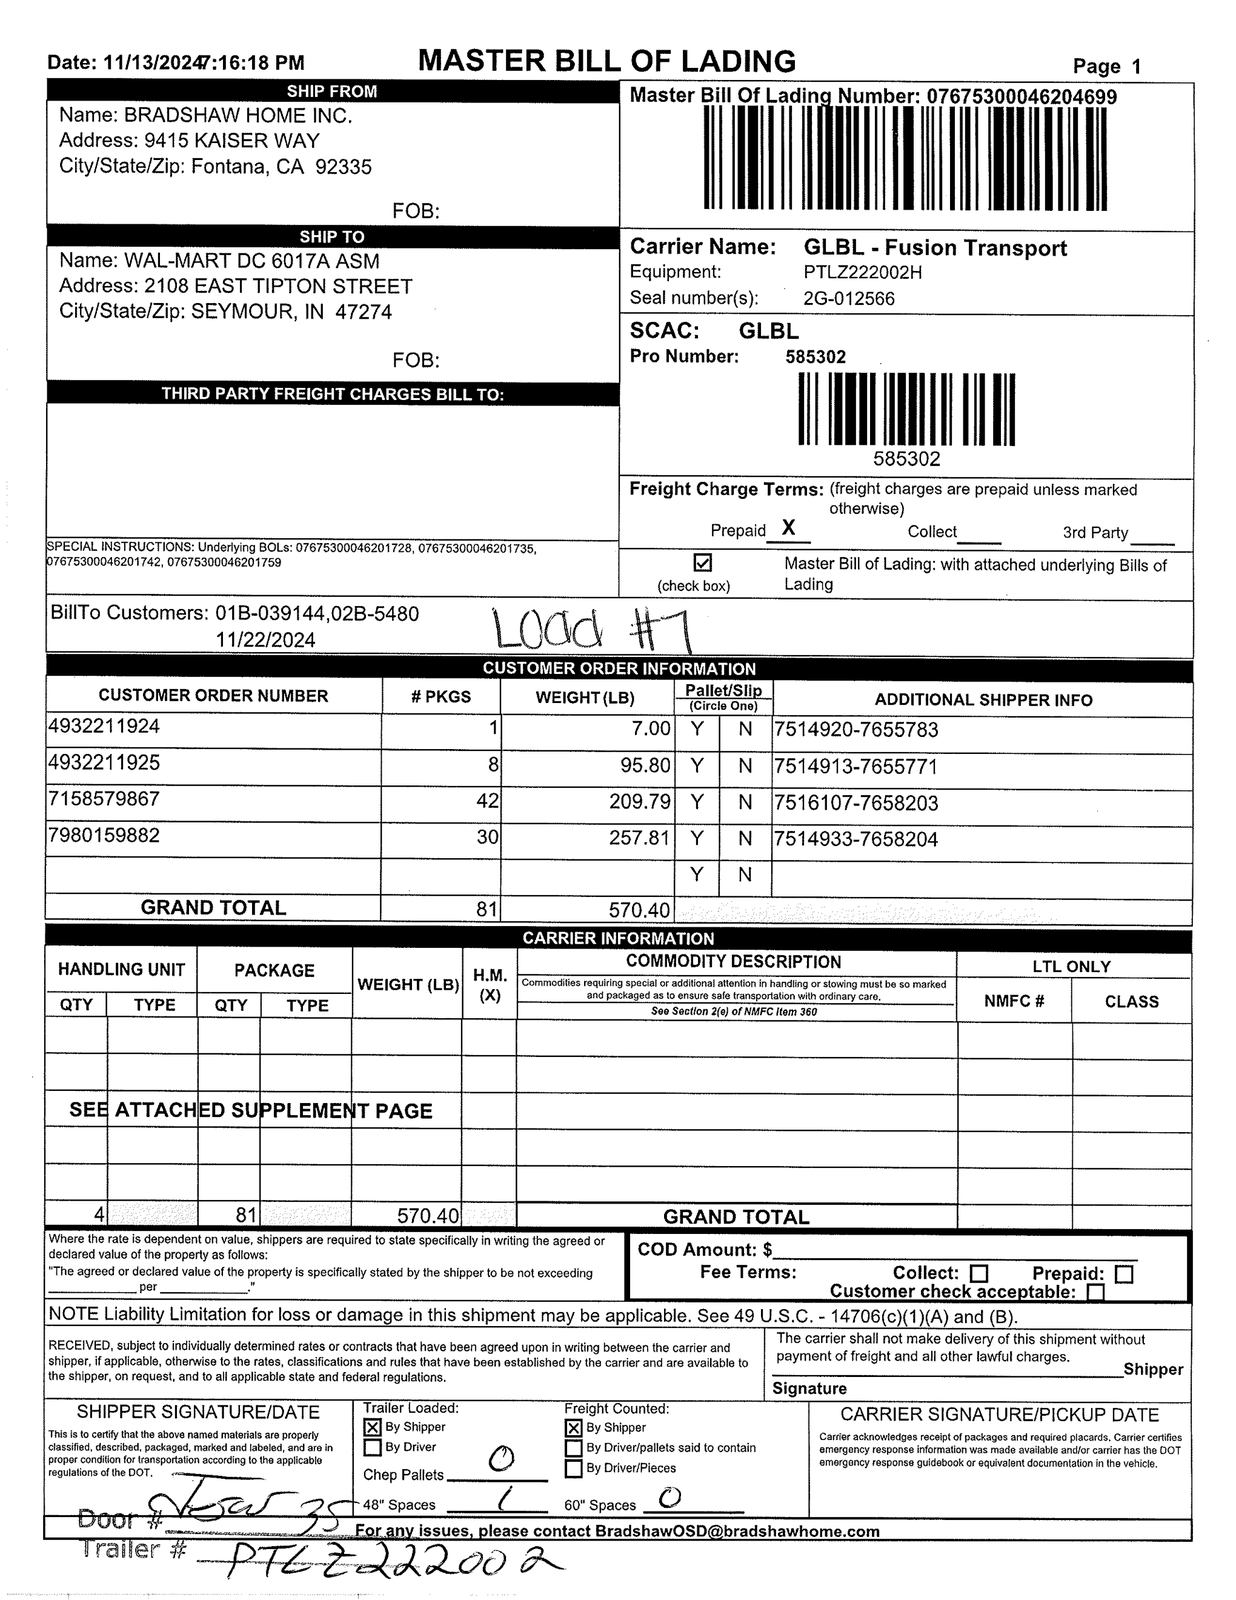 Date: 11/13/2024 7:16:18 PM
MASTER BILL OF LADING
Page 1
SHIP FROM
Name: BRADSHAW HOME INC.
Address: 9415 KAISER WAY
City/State/Zip: Fontana, CA 92335
FOB:
Master Bill Of Lading Number: 07675300046204699
SHIP TO
Name: WAL-MART DC 6017A ASM
Address: 2108 EAST TIPTON STREET
City/State/Zip: SEYMOUR, IN 47274
FOB:
Carrier Name: GLBL - Fusion Transport
Equipment: PTLZ222002H
Seal number(s): 2G-012566
SCAC: GLBL
Pro Number: 585302
585302
THIRD PARTY FREIGHT CHARGES BILL TO:
Freight Charge Terms: (freight charges are prepaid unless marked
otherwise)
Prepaid X Collect 3rd Party
SPECIAL INSTRUCTIONS: Underlying BOLs: 07675300046201728, 07675300046201735,
07675300046201742, 07675300046201759
(check box)
Master Bill of Lading: with attached underlying Bills of
Lading
BillTo Customers: 01B-039144,02B-5480
11/22/2024
Load #7
CUSTOMER ORDER INFORMATION
CUSTOMER ORDER NUMBER # PKGS WEIGHT (LB) Pallet/Slip (Circle One) ADDITIONAL SHIPPER INFO
4932211924 1 7.00 Y N 7514920-7655783
4932211925 8 95.80 Y N 7514913-7655771
7158579867 42 209.79 Y N 7516107-7658203
7980159882 30 257.81 Y N 7514933-7658204
Y N
GRAND TOTAL 81 570.40
CARRIER INFORMATION
HANDLING UNIT PACKAGE WEIGHT (LB) H.M. (X) COMMODITY DESCRIPTION LTL ONLY
Commodities requiring special or additional attention in handling or stowing must be so marked
and packaged as to ensure safe transportation with ordinary care.
See Section 2(e) of NMFC Item 360
QTY TYPE QTY TYPE NMFC # CLASS
SEE ATTACHED SUPPLEMENT PAGE
4 81 570.40 GRAND TOTAL
Where the rate is dependent on value, shippers are required to state specifically in writing the agreed or
declared value of the property as follows:
"The agreed or declared value of the property is specifically stated by the shipper to be not exceeding
per ."
COD Amount: $
Fee Terms: Collect: Prepaid:
Customer check acceptable:
NOTE Liability Limitation for loss or damage in this shipment may be applicable. See 49 U.S.C. - 14706(c)(1)(A) and (B).
RECEIVED, subject to individually determined rates or contracts that have been agreed upon in writing between the carrier and
shipper, if applicable, otherwise to the rates, classifications and rules that have been established by the carrier and are available to
the shipper, on request, and to all applicable state and federal regulations.
The carrier shall not make delivery of this shipment without
payment of freight and all other lawful charges.
Shipper
Signature
SHIPPER SIGNATURE/DATE
This is to certify that the above named materials are properly
classified, described, packaged, marked and labeled, and are in
proper condition for transportation according to the applicable
regulations of the DOT.
Trailer Loaded:
X By Shipper
By Driver
Chep Pallets 0
48" Spaces 1
Freight Counted:
X By Shipper
By Driver/pallets said to contain
By Driver/Pieces
60" Spaces 0
CARRIER SIGNATURE/PICKUP DATE
Carrier acknowledges receipt of packages and required placards. Carrier certifies
emergency response information was made available and/or carrier has the DOT
emergency response guidebook or equivalent documentation in the vehicle.
Door # 35
For any issues, please contact BradshawOSD@bradshawhome.com
Trailer # PTLZ222002